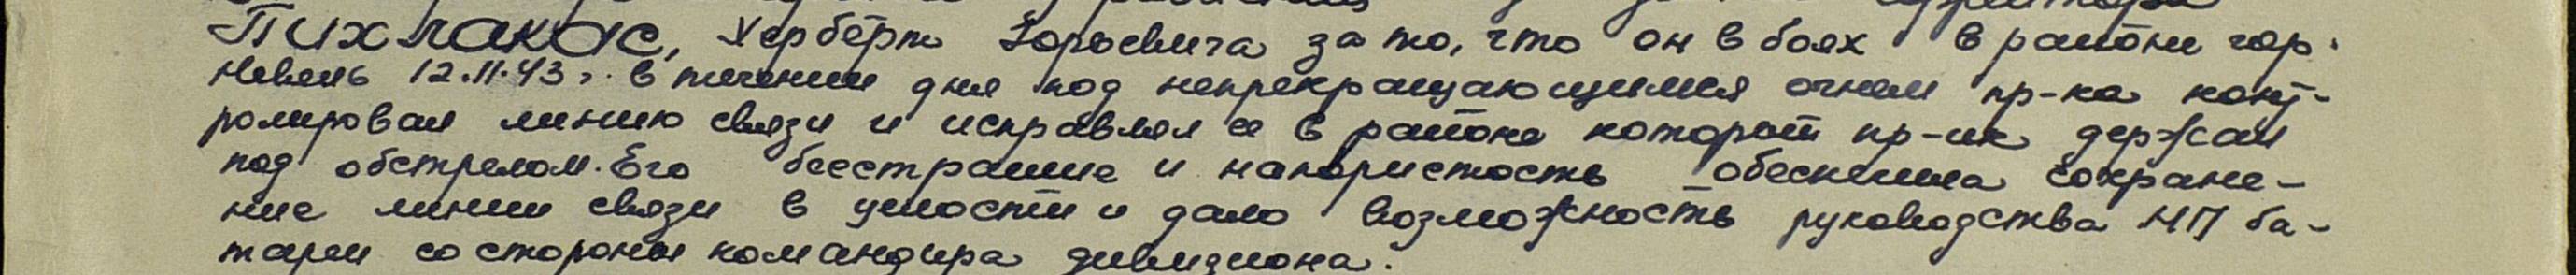 Пихлакас, Херберт Юрьевича за то, что он в боях в районе гор.
Невель 12.11.43 г. в течении дня под непрекращающимся огнем пр-ка конт-
ролировал линию связи и исправлял ее в районе который пр-ик держал
под обстрелом. Его бесстрашие и напористость обеспечила сохране-
ние линии связи в целости и дало возможность руководства НП ба-
тареи со стороны командира дивизиона.